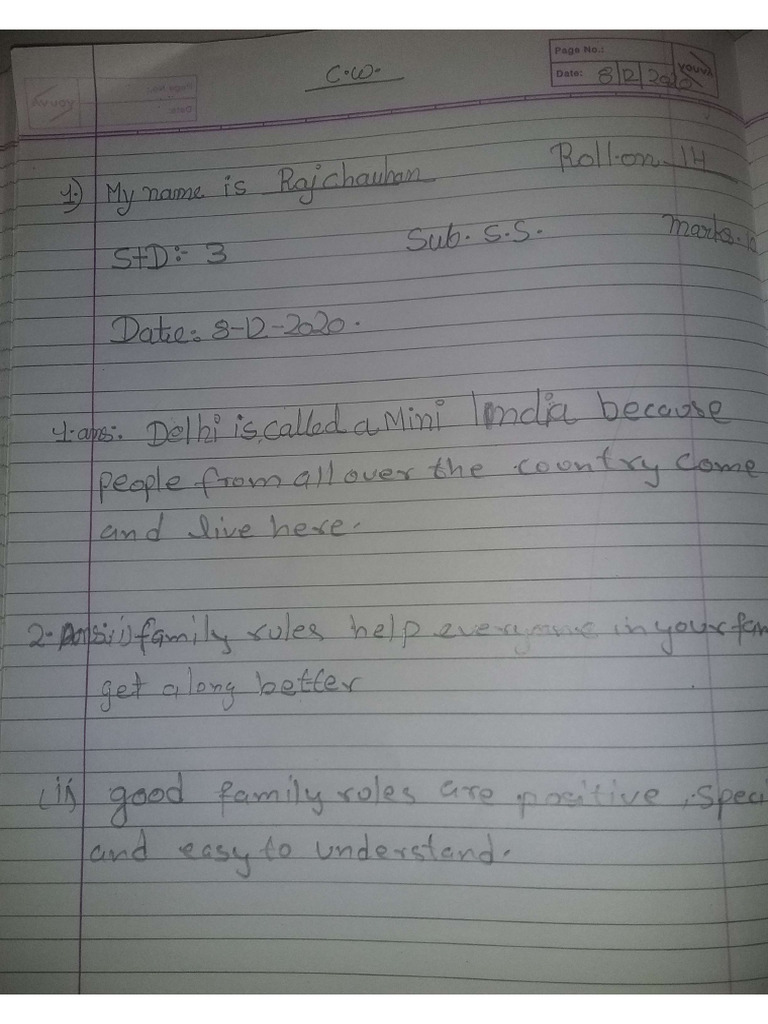 C.W.
Page No.:
Date: 8/12/2020
YOUVA
1) My name is Rajchauhan Roll-on-14
StD:- 3 Sub. S.S. Marks.
Date: 8-12-2020.
1.ans:. Delhi is called a Mini India because
people from all over the country come
and live here.
2. Ans i) family rules help everyone in your fam
get along better
(ii) good family rules are positive, speci
and easy to understand.